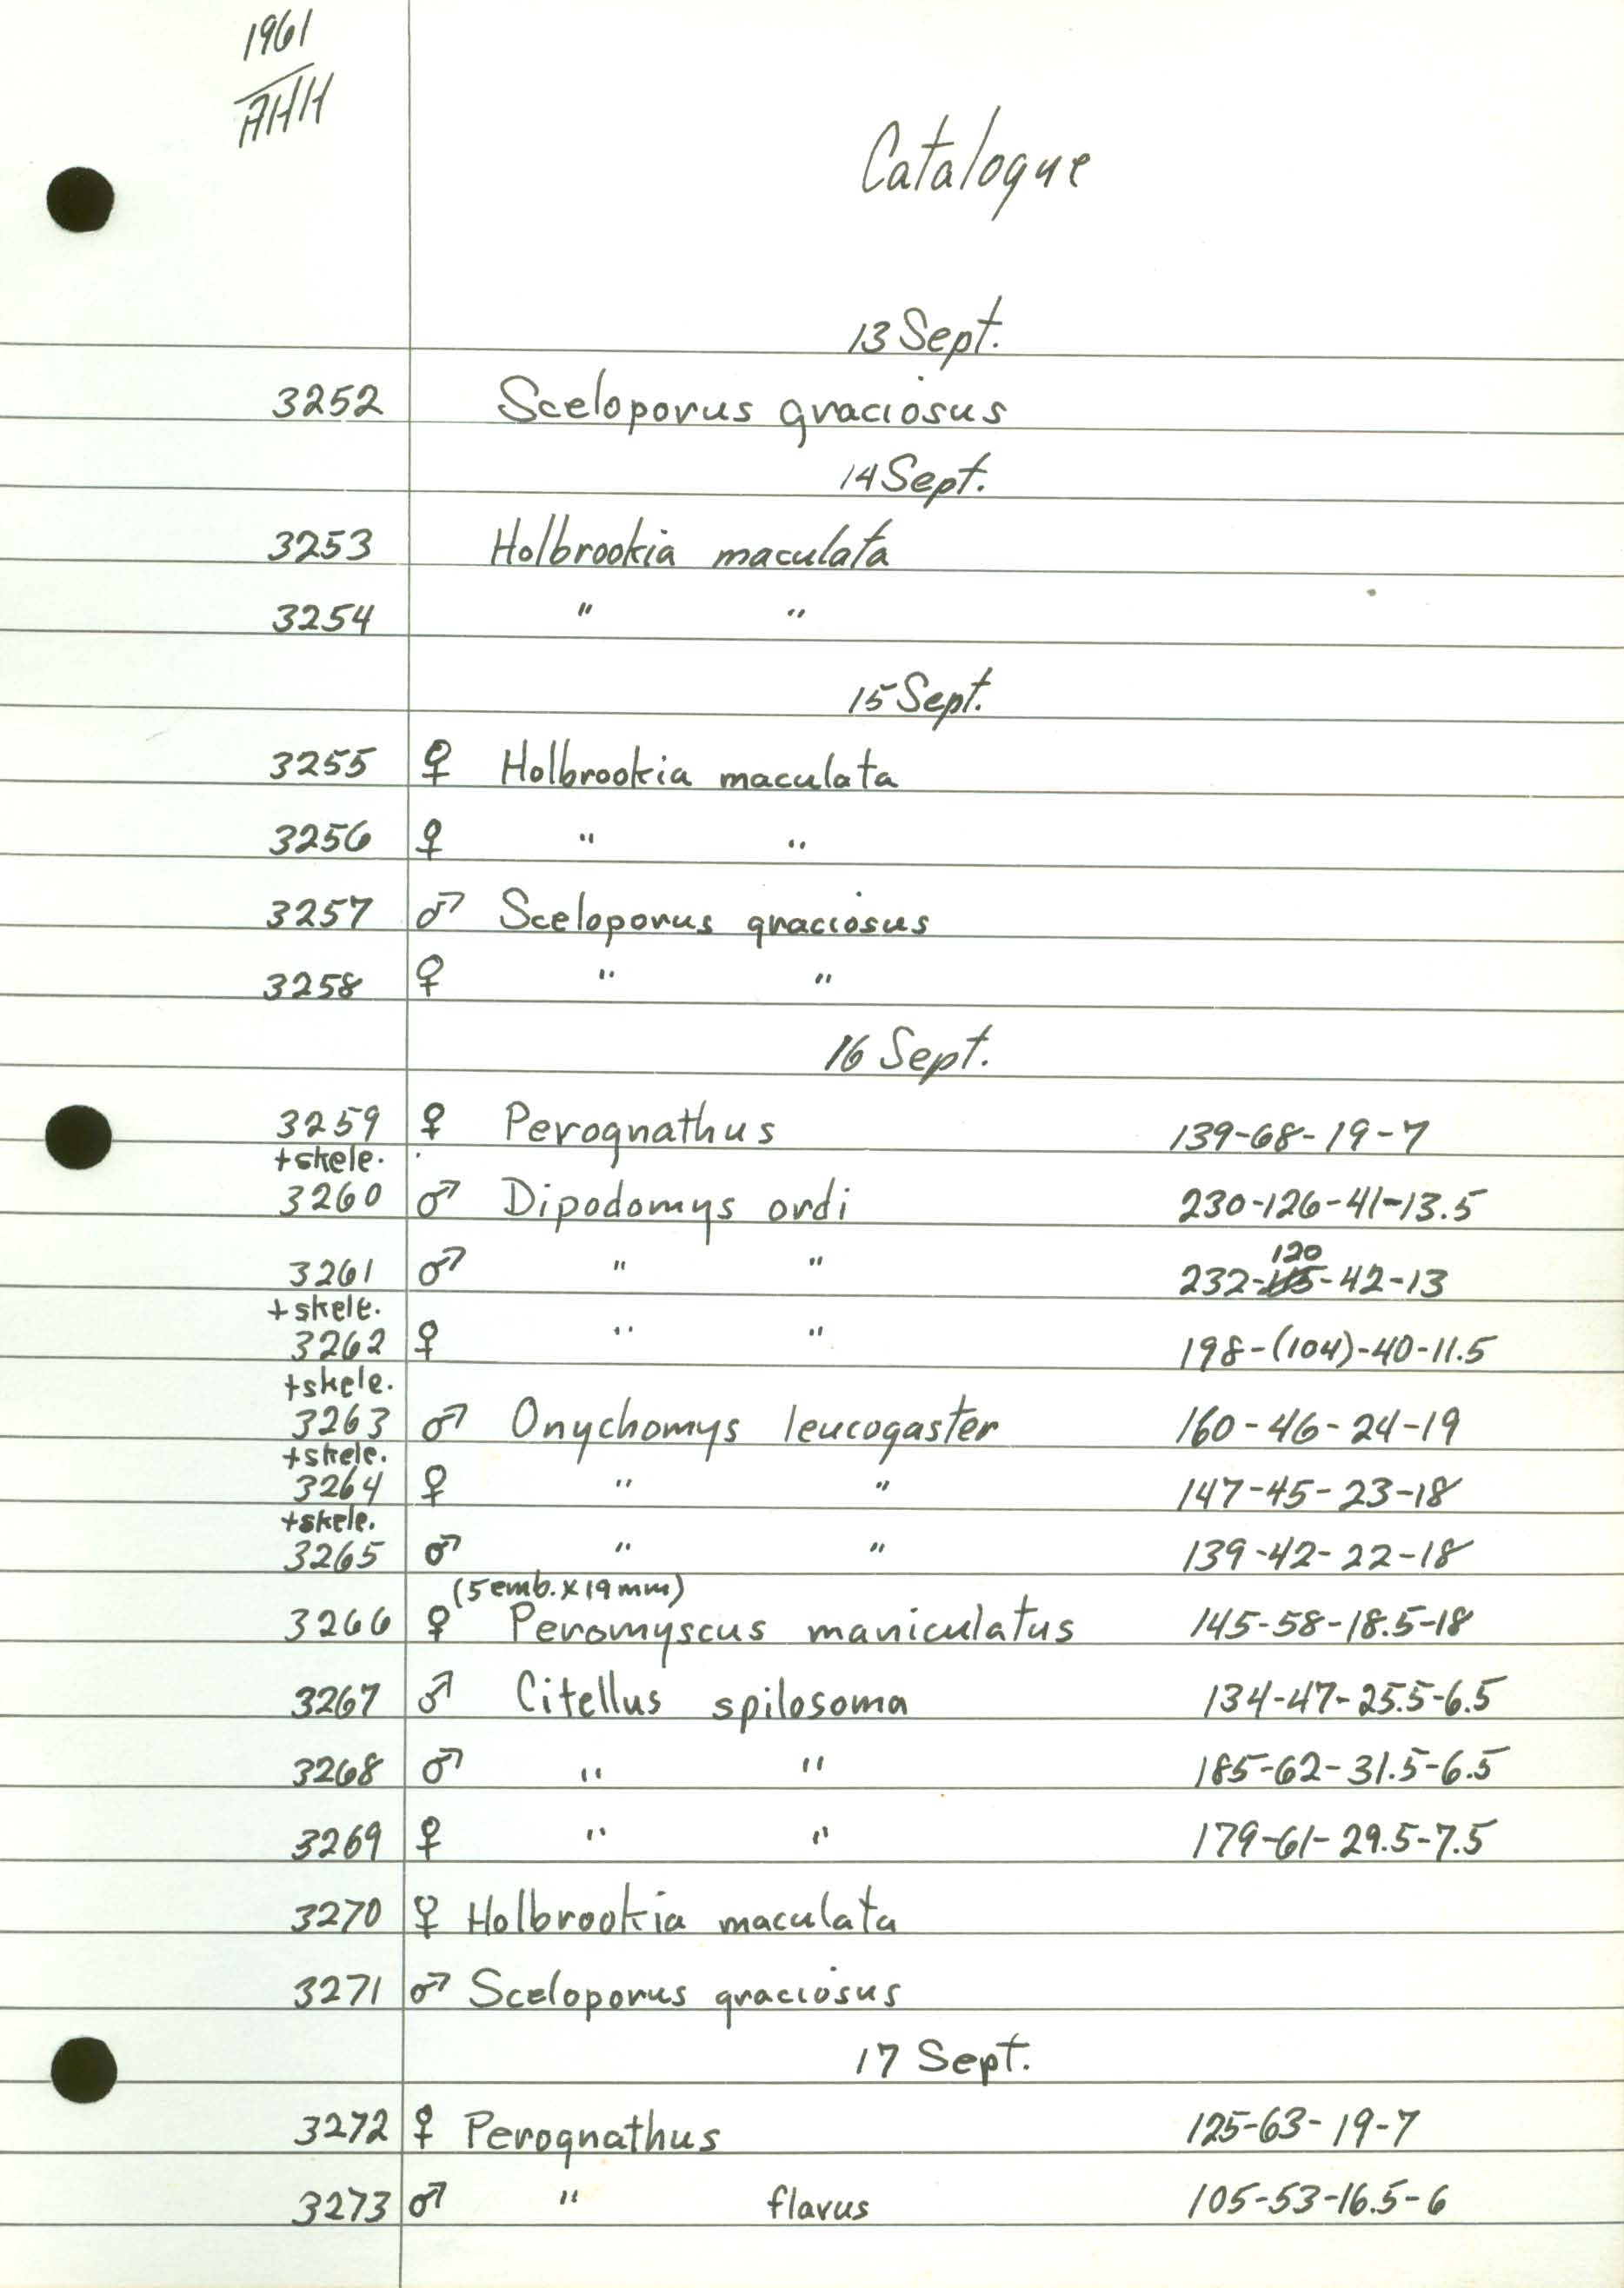 1961
AHH
Catalogue
13 Sept.
3252 Sceloporus graciosus
14 Sept.
3253 Holbrookia maculata
3254 " "
15 Sept.
3255 ♀ Holbrookia maculata
3256 ♀ " "
3257 ♂ Sceloporus graciosus
3258 ♀ " "
16 Sept.
3259 ♀ Perognathus 139-68-19-7
+skele.
3260 ♂ Dipodomys ordi 230-126-41-13.5
120
3261 ♂ " " 232-115-42-13
+skele.
3262 ♀ " " 198-(104)-40-11.5
+skele.
3263 ♂ Onychomys leucogaster 160-46-24-19
+skele.
3264 ♀ " " 147-45-23-18
+skele.
3265 ♂ " " 139-42-22-18
(5 emb. x 19 mm)
3266 ♀ Peromyscus maniculatus 145-58-18.5-18
3267 ♂ Citellus spilosoma 134-47-25.5-6.5
3268 ♂ " " 185-62-31.5-6.5
3269 ♀ " " 179-61-29.5-7.5
3270 ♀ Holbrookia maculata
3271 ♂ Sceloporus graciosus
17 Sept.
3272 ♀ Perognathus 125-63-19-7
3273 ♂ " flavus 105-53-16.5-6